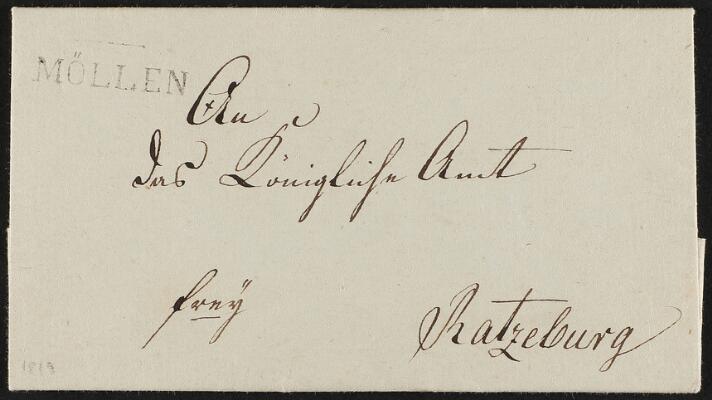 MÖLLEN
An
das Königliche Amt
freÿ
Ratzeburg
1819